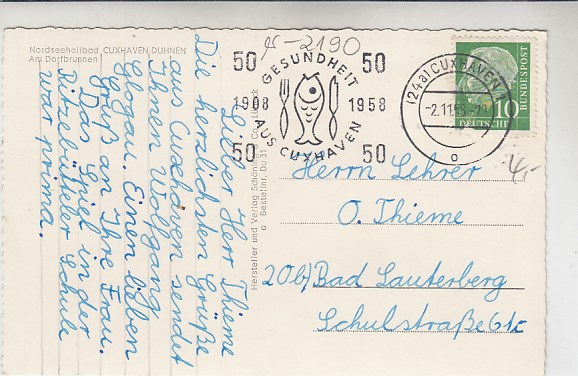 Nordseeheilbad CUXHAVEN DUHNEN
Am Dorfbrunnen
Lieber Herr Thieme
Die herzlichsten Grüße
aus Cuxhaven sendet
Ihnen Wolfgang
Glogau. Einen lieben
Gruß an Ihre Frau.
Das Spiel in der
Ritzebütteler Schule
war prima.
Hersteller und Verlag Schöning & Co., Lübeck
Bestellnr. Du 31
-2190
50 50
GESUNDHEIT
1908 1958
AUS CUXHAVEN
50 50
(24a) CUXHAVEN
-2.11.58
o
DEUTSCHE BUNDESPOST
10
4,-
Herrn Lehrer
O. Thieme
20b/Bad Lauterberg
Schulstraße 61c